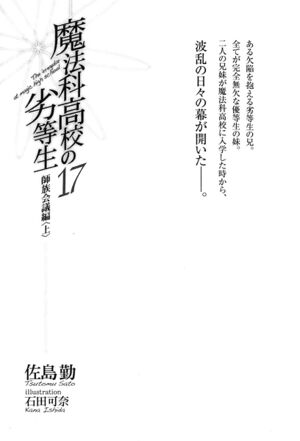 ある欠陥を抱える劣等生の兄。
全てが完全無欠な優等生の妹。
二人の兄妹が魔法科高校に入学した時から、
波乱の日々の幕が開いた——。
魔法科高校の
劣等生
The irregular
at magic high school
17
師族会議編〈上〉
佐島 勤
Tsutomu Sato
illustration
石田可奈
Kana Ishida